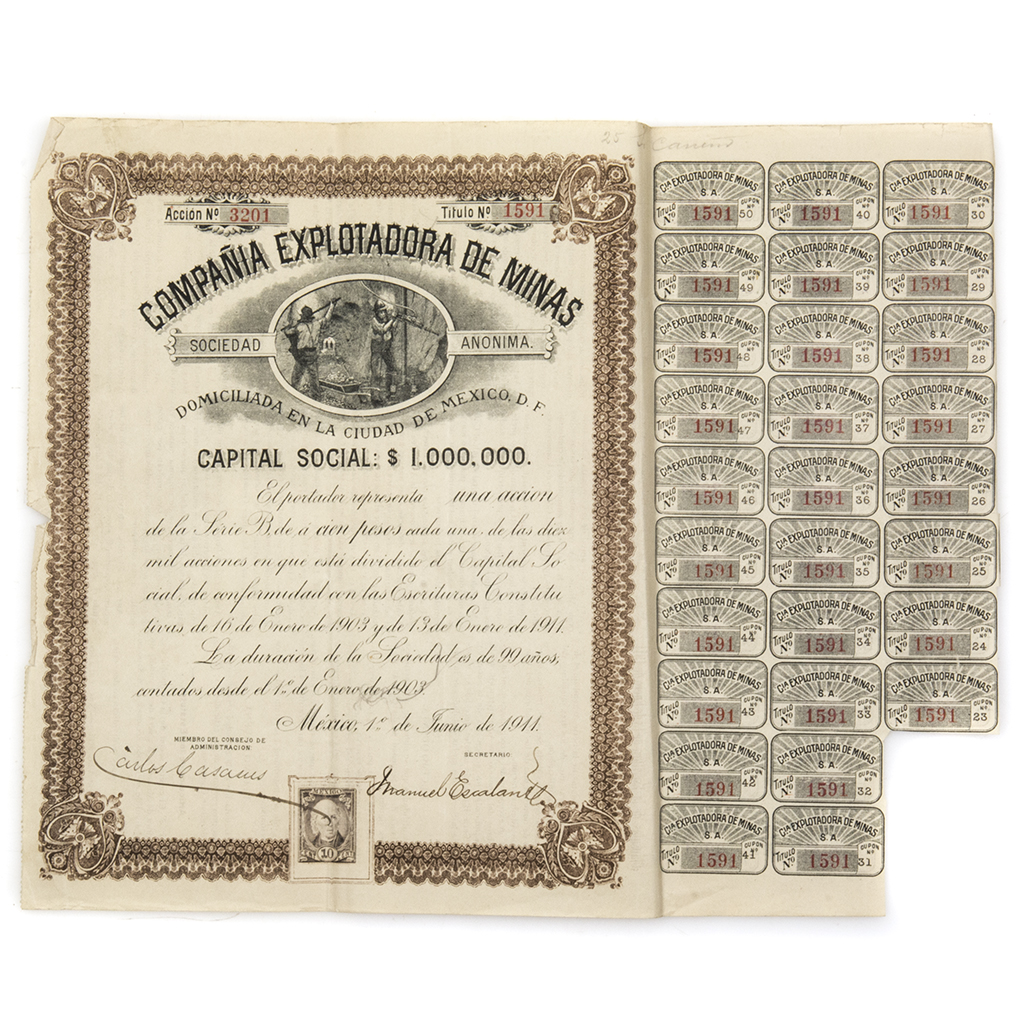 25
Acción Nº 3201
Titulo Nº 1591
COMPAÑIA EXPLOTADORA DE MINAS
SOCIEDAD ANONIMA.
DOMICILIADA EN LA CIUDAD DE MEXICO, D. F.
CAPITAL SOCIAL: $ 1.000,000.
El portador representa una accion
de la Série B, de á cien pesos cada una, de las diez
mil acciones en que está dividido el Capital So
cial, de conformidad con las Escrituras Constitu
tivas, de 16 de Enero de 1903 y de 13 de Enero de 1911.
La duración de la Sociedad es de 99 años,
contados desde el 1º de Enero de 1903.
México, 1º de Junio de 1911.
MIEMBRO DEL CONSEJO DE
ADMINISTRACION
SECRETARIO
Manuel Escalante
MEXICO
10
CIA EXPLOTADORA DE MINAS S.A. TITULO Nº 1591 CUPON Nº 50
CIA EXPLOTADORA DE MINAS S.A. TITULO Nº 1591 CUPON Nº 40
CIA EXPLOTADORA DE MINAS S.A. TITULO Nº 1591 CUPON Nº 30
CIA EXPLOTADORA DE MINAS S.A. TITULO Nº 1591 CUPON Nº 49
CIA EXPLOTADORA DE MINAS S.A. TITULO Nº 1591 CUPON Nº 39
CIA EXPLOTADORA DE MINAS S.A. TITULO Nº 1591 CUPON Nº 29
CIA EXPLOTADORA DE MINAS S.A. TITULO Nº 1591 CUPON Nº 48
CIA EXPLOTADORA DE MINAS S.A. TITULO Nº 1591 CUPON Nº 38
CIA EXPLOTADORA DE MINAS S.A. TITULO Nº 1591 CUPON Nº 28
CIA EXPLOTADORA DE MINAS S.A. TITULO Nº 1591 CUPON Nº 47
CIA EXPLOTADORA DE MINAS S.A. TITULO Nº 1591 CUPON Nº 37
CIA EXPLOTADORA DE MINAS S.A. TITULO Nº 1591 CUPON Nº 27
CIA EXPLOTADORA DE MINAS S.A. TITULO Nº 1591 CUPON Nº 46
CIA EXPLOTADORA DE MINAS S.A. TITULO Nº 1591 CUPON Nº 36
CIA EXPLOTADORA DE MINAS S.A. TITULO Nº 1591 CUPON Nº 26
CIA EXPLOTADORA DE MINAS S.A. TITULO Nº 1591 CUPON Nº 45
CIA EXPLOTADORA DE MINAS S.A. TITULO Nº 1591 CUPON Nº 35
CIA EXPLOTADORA DE MINAS S.A. TITULO Nº 1591 CUPON Nº 25
CIA EXPLOTADORA DE MINAS S.A. TITULO Nº 1591 CUPON Nº 44
CIA EXPLOTADORA DE MINAS S.A. TITULO Nº 1591 CUPON Nº 34
CIA EXPLOTADORA DE MINAS S.A. TITULO Nº 1591 CUPON Nº 24
CIA EXPLOTADORA DE MINAS S.A. TITULO Nº 1591 CUPON Nº 43
CIA EXPLOTADORA DE MINAS S.A. TITULO Nº 1591 CUPON Nº 33
CIA EXPLOTADORA DE MINAS S.A. TITULO Nº 1591 CUPON Nº 23
CIA EXPLOTADORA DE MINAS S.A. TITULO Nº 1591 CUPON Nº 42
CIA EXPLOTADORA DE MINAS S.A. TITULO Nº 1591 CUPON Nº 32
CIA EXPLOTADORA DE MINAS S.A. TITULO Nº 1591 CUPON Nº 41
CIA EXPLOTADORA DE MINAS S.A. TITULO Nº 1591 CUPON Nº 31